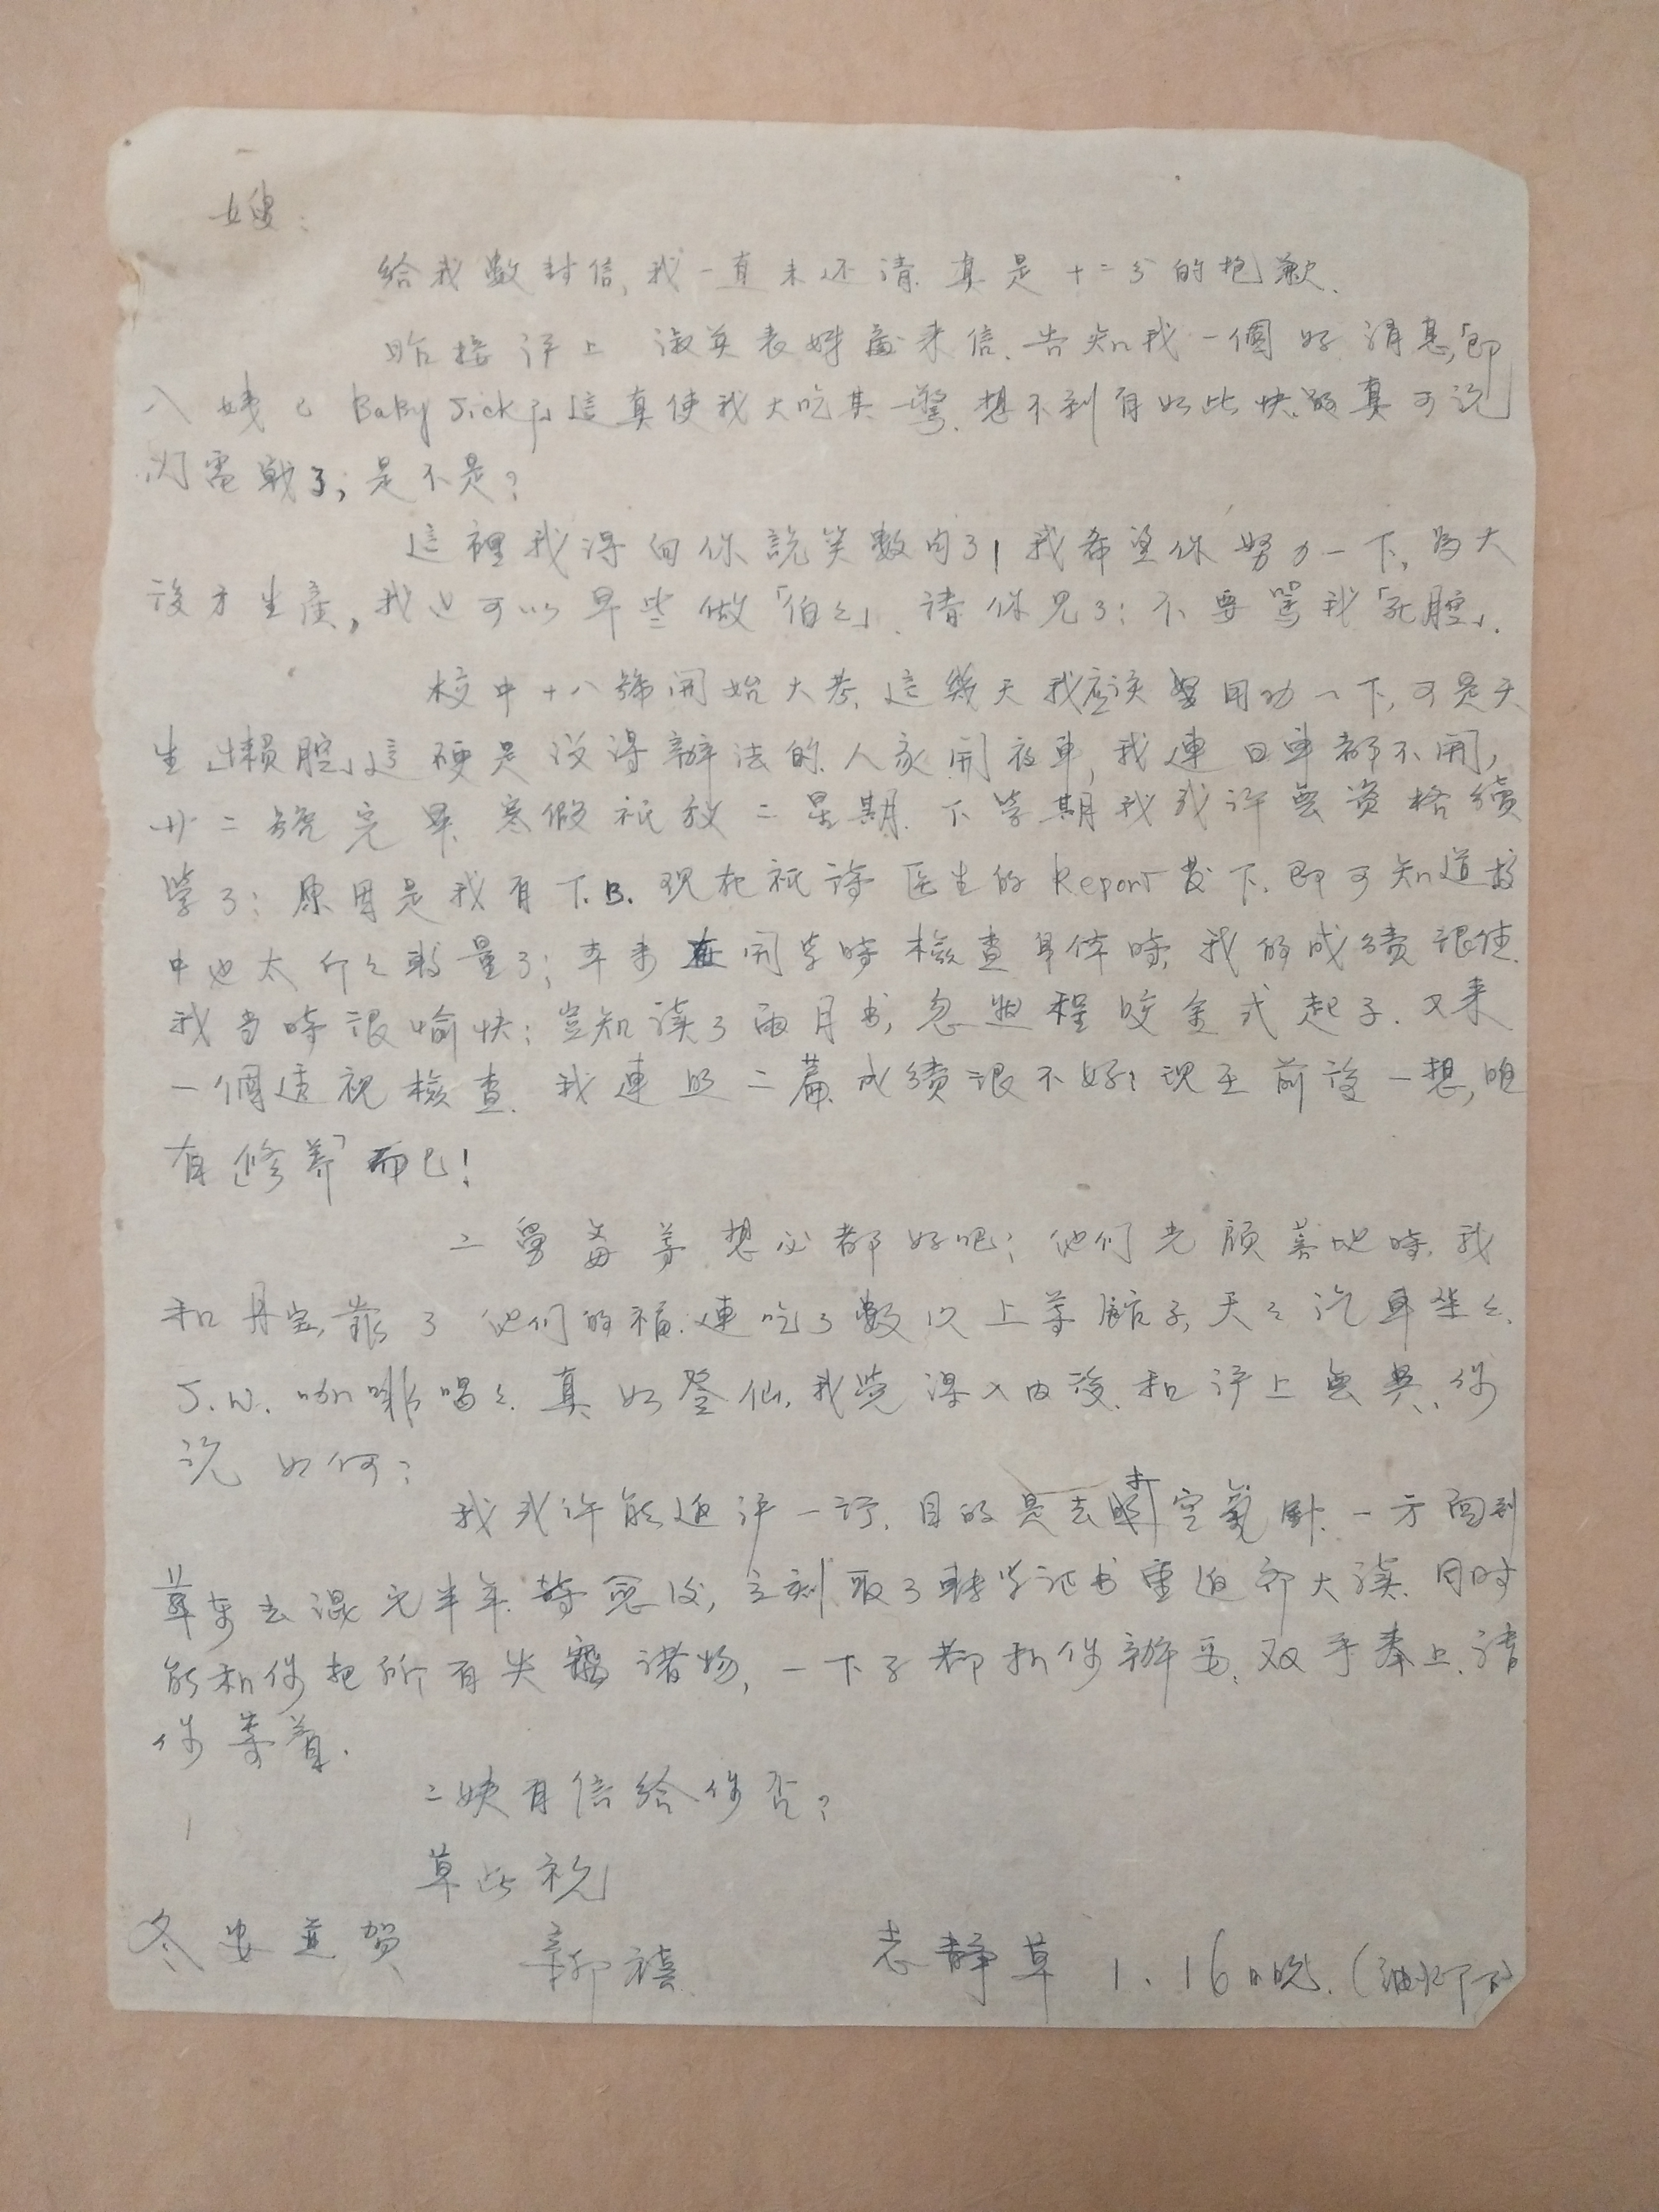 嫂:
給我數封信,我一直未还清.真是十二分的抱歉.
昨接沪上 淑英表姊處来信.告知我一個好消息,「即
八姨已 Baby Sick 了」這真使我大吃其一驚.想不到有如此快.啟真可说
闪電戰了,是不是?
這裡我得向你說笑數句了!我希望你努力一下,為大
後方生產,我也可以早些做「伯々」.請你見了:不要罵我「死腔」.
校中十八號開始大考.這幾天我应该用功一下,可是天
生「懶腔」這硬是没得辦法的.人家開夜車,我連日車都不開,
廿二號完畢.寒假祇放二星期.下学期我或許無資格續
学了:原因是我有 T.B. 现在祇待医生的 Report 发下.即可知道.校
中也太 了;本来在開学時檢查身体時,我的成績很佳.
我当時很愉快;豈知讀了兩月书,忽的程咬金式起子.又来
一個透視檢查.我連照二篇,成績很不好!现在前後一想,唯
有「修養」而已!
二舅母等想必都好吧;他们光顧蓉地時,我
和丹宝,靠了他们的福.連吃了數次上等館子,天々汽車坐々.
J.W. 咖啡喝々.真如登仙,我覺深入内後.和沪上無異.你
说如何?
我或許能返沪一行.目的是去打空氣針.一方面到
去混完半年.待愈後,立刻取了轉学证书重返 大讀.同时
能和你把所有失 諸物,一下子都和你辦妥.双手奉上.請
你等着.
二姨有信给你否?
草此祝
冬安並賀 新禧 志静草 1.16日晚.(油灯下)